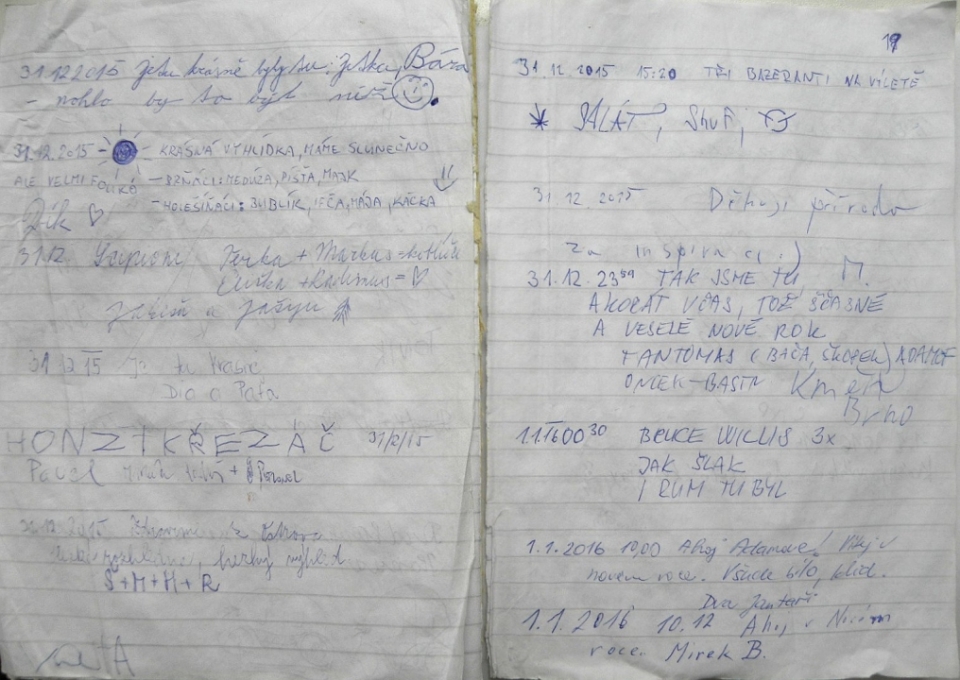 31.12.2015 Je tu krásně byly tu: Jitka, Bára
- mohlo by to být
31.12.2015 - - KRÁSNÁ VÝHLÍDKA, MÁME SLUNEČNO
ALE VELMI FOUKÁ - BRŇÁCI: MEDÚZA, PIŠTA, MAJK
- HOLEŠIŇÁCI: BUBLÍK, IFČA, MÁJA, KAČKA
Dík ♡
31.12. Terka + Markus =
+ Radimus = ♡
a
31.12.15 Je tu krásně
Dia a Paťa
HONZÍK ŘEZÁČ 31/12/15
Pavel Mirek +
31.12.2015 z
hezký výhled
Š+M+M+R
19
31.12.2015 15:20 TŘI BAZERANTI NA VÍLETĚ
* SALÁT, ShuFi,
31.12.2015 Děkuji přírodo
za inspiraci :) M.
31.12. 23⁵⁹ TAK JSME TU,
AKORÁT VČAS, TOŽ ŠČASNÉ
A VESELÉ NOVÉ ROK
FANTOMAS (BAČA, ) ADAMOF
Kmeťi
Brno
1.1.16 00³⁰ BRUCE WILLIS 3x
JAK ŠLAK
I RUM TU BYL
1.1.2016 10,00 Ahoj Adamove! Vítej v
novém roce. Všude bílo, klid.
Dva
1.1.2016 10.12 Ahoj v Novém
roce. Mirek B.